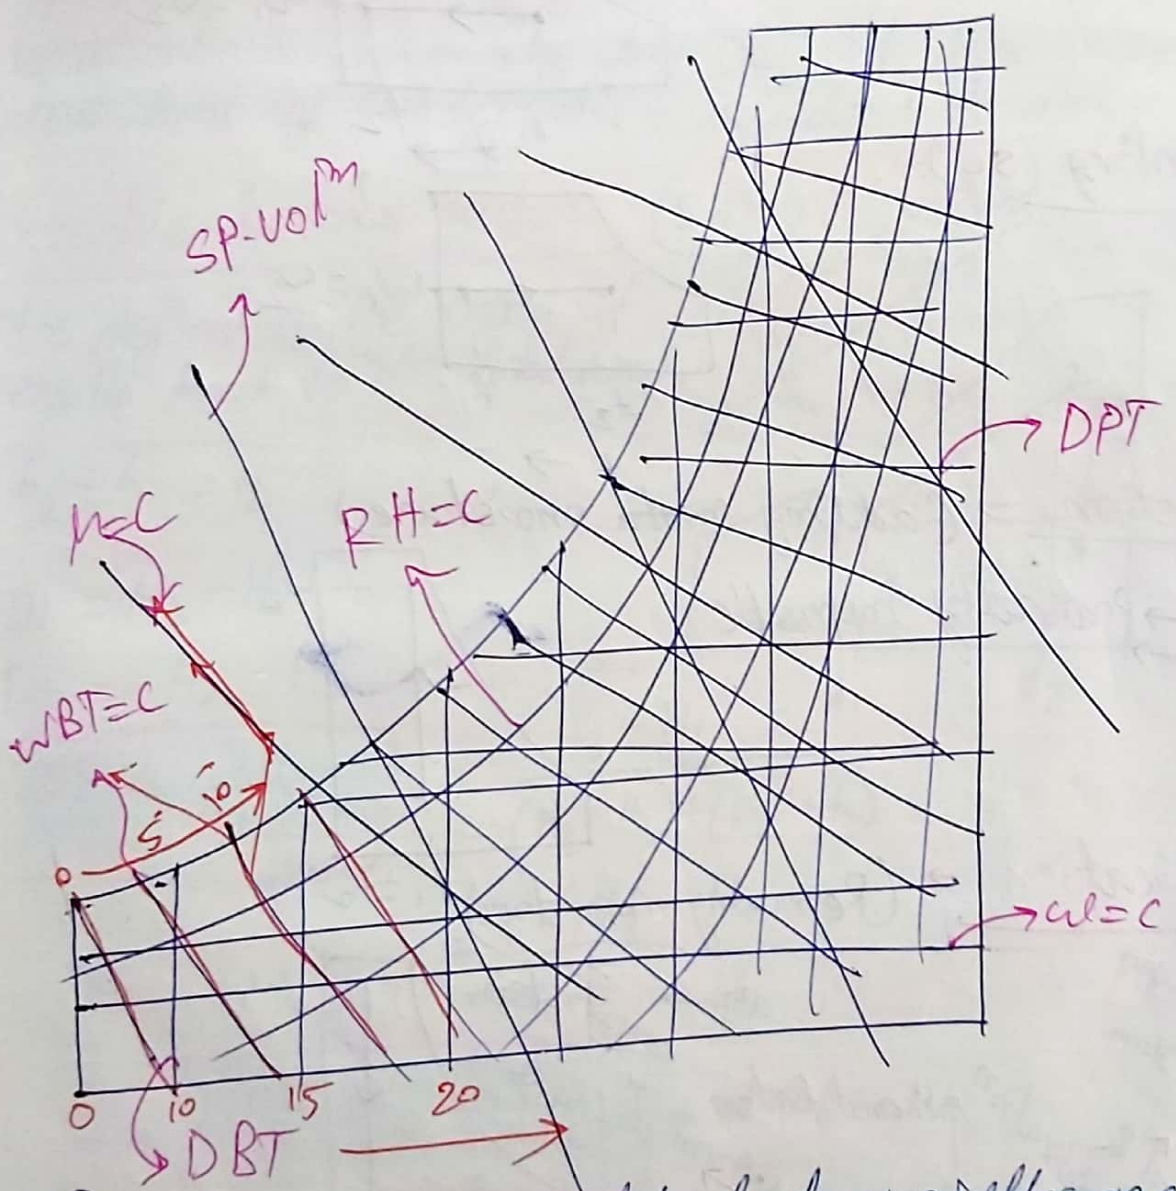 SP-Volm
DPT
μ=C
RH=C
WBT=C
10
5
0
ω=C
0 10 15 20
DBT